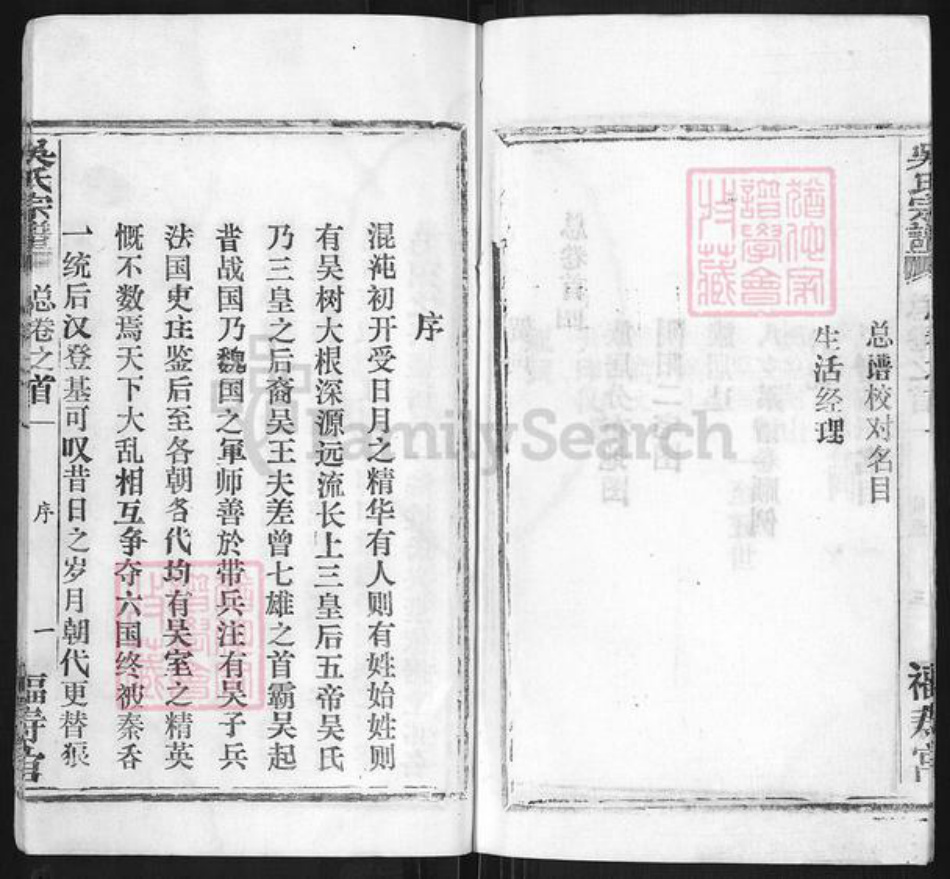 吳氏宗譜
总谱校对名目
生活经理
猶他家
譜學會
珍藏
福寿官
序
混沌初开受日月之精华有人则有姓始姓则
有吴树大根深源远流长上三皇后五帝吴氏
乃三皇之后裔吴王夫差曾七雄之首霸吴起
昔战国乃魏国之軍师善於带兵注有吴子兵
法国史庄鉴后至各朝各代均有吴室之精英
慨不数焉天下大乱相互争夺六国终被秦吞
一统后汉登基可叹昔日之岁月朝代更替狠
吳氏宗譜 总卷之首 序 一 福寿官
猶他家
譜學會
珍藏
FamilySearch